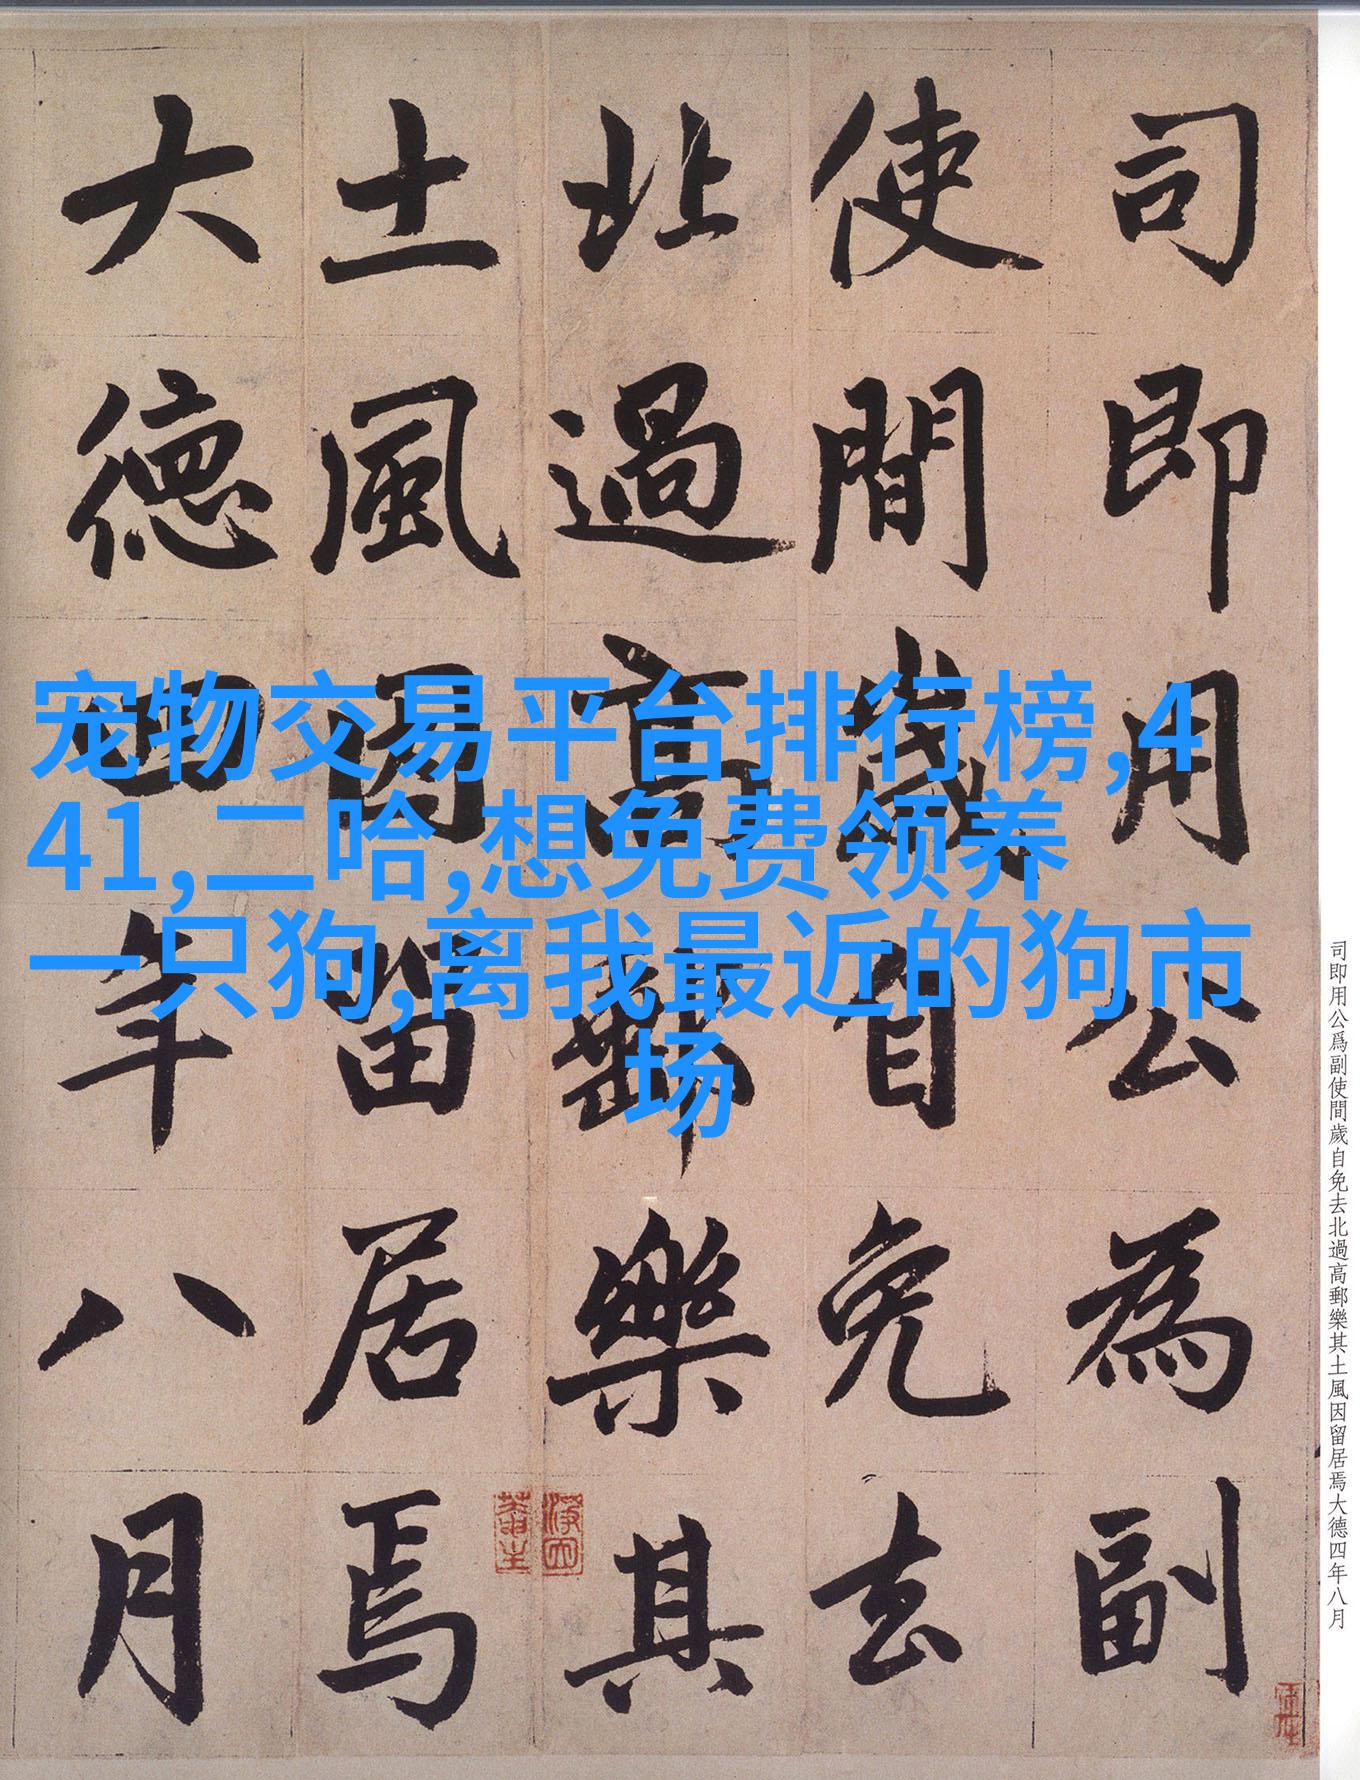 司即用公為副
使間歲自免去
北過高郵樂其
土風因留居焉
大德四年八月
宠物交易平台排行榜,4
41,二哈,想免费领养
一只狗,离我最近的狗市
场
司即用公爲副使間歲自免去北過高郵樂其土風因留居焉大德四年八月